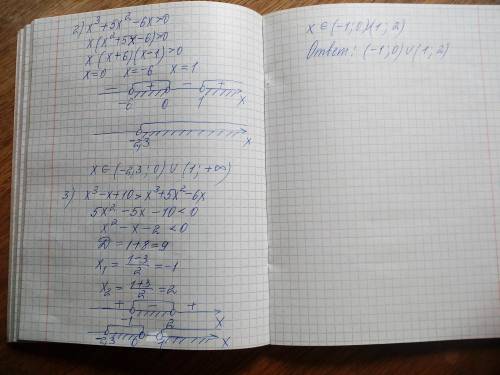 2) x³+5x²-6x>0
x(x²+5x-6)>0
x(x+6)(x-1)>0
x=0 x=-6 x=1
- + - +
-6 0 1 x
-2,3 x
x∈(-2,3; 0)∪(1; +∞)
3) x³-x+10>x³+5x²-6x
5x²-5x-10<0
x²-x-2<0
D=1+8=9
x₁=(1-3)/2=-1
x₂=(1+3)/2=2
+ - +
-1 2 x
-2,3 0 1 x
x∈(-1;0)(1;2)
Ответ: (-1;0)∪(1;2)